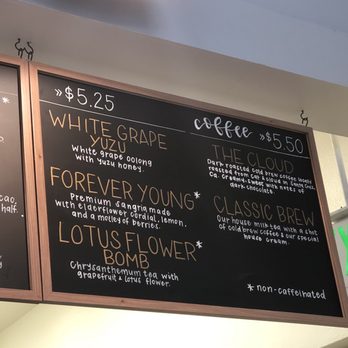 »$5.25
WHITE GRAPE
YUZU
White grape oolong
with yuzu honey.
FOREVER YOUNG*
Premium sangria made
with elderflower cordial, lemon,
and a motley of berries.
LOTUS FLOWER*
BOMB
Chrysanthemum tea with
grapefruit & lotus flower.
coffee »$5.50
THE CLOUD
Dark roasted cold brew coffee
roasted from Cat & Cloud in Santa Cruz,
Ca. Creamy sweet with notes of
dark chocolate.
CLASSIC BREW
Our house milk tea with a shot
of cold brew coffee & our special
house cream.
*non-caffeinated
*
half.